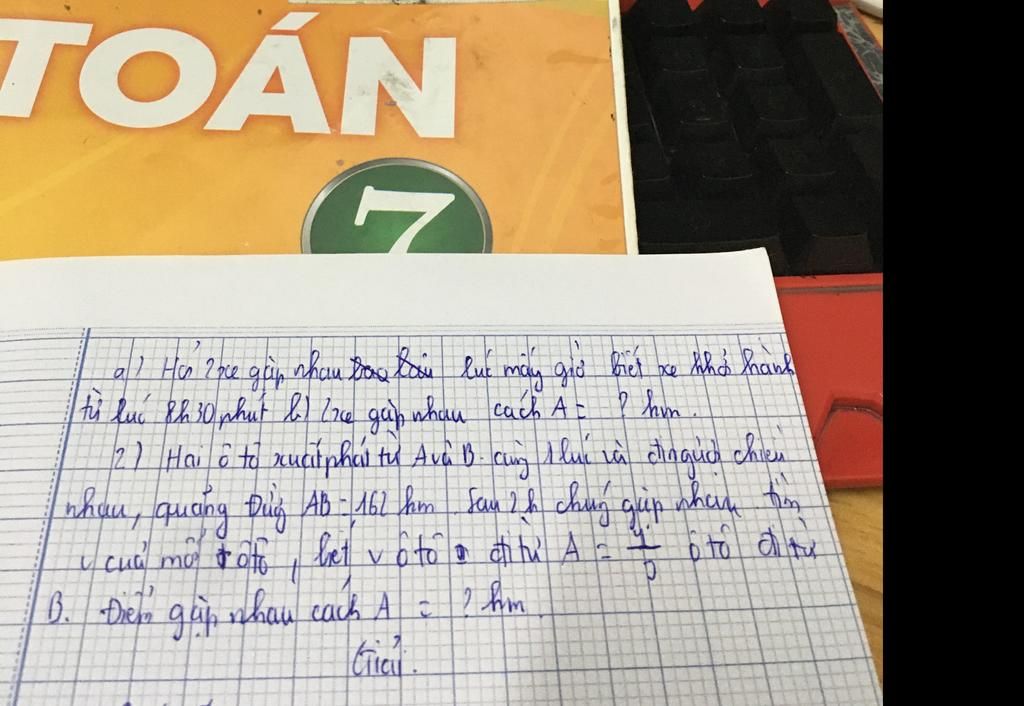 TOÁN
7
a) Hỏi 2 xe gặp nhau lúc mấy giờ biết xe khởi hành
từ lúc 8h30 phút b) 2 xe gặp nhau cách A = ? km.
2) Hai ô tô xuất phát từ A và B cùng 1 lúc và đi ngược chiều
nhau, quãng đường AB = 162 km. Sau 2h chúng gặp nhau. tìm
v của mỗi ôtô, biết v ôtô đi từ A = 4/5 ôtô đi từ
B. Điểm gặp nhau cách A = ? km
Giải.